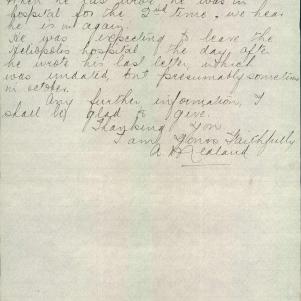 When he last wrote he was in
hospital for the 2nd time, we hear
he is in again.
He was expecting to leave the
Heliopolis hospital the day after
he wrote his last letter, which
was undated, but presumably sometime
in october.
Any further information, I
shall be glad to give.
Thanking you
I am yours Faithfully
A